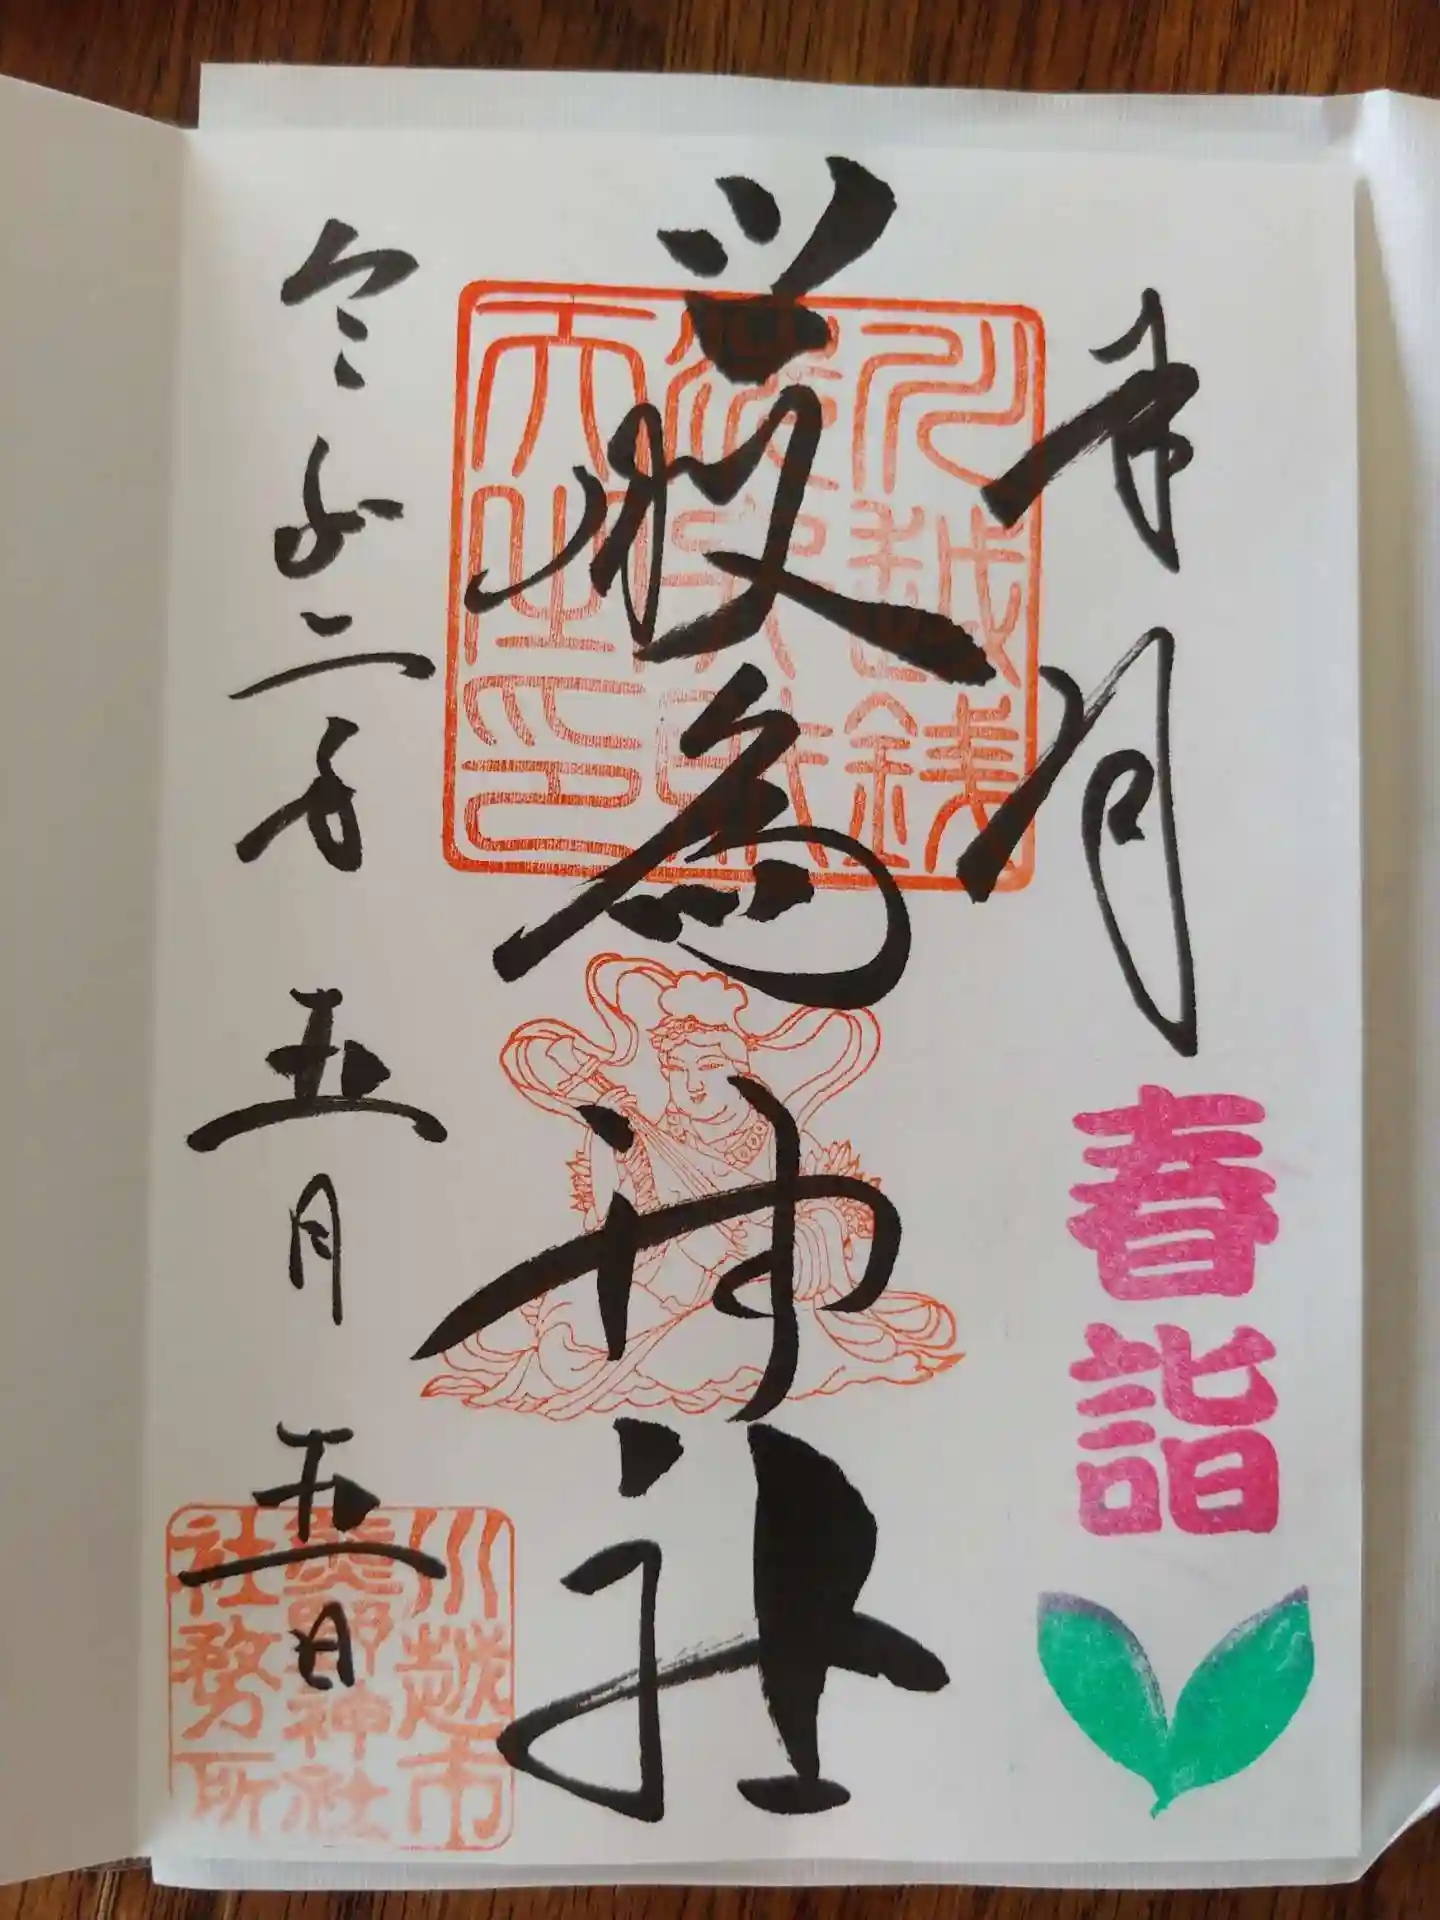 奉拝
春詣
厳島神社
川越銭洗弁財天之印
令和二年五月五日
川越市熊野神社社務所